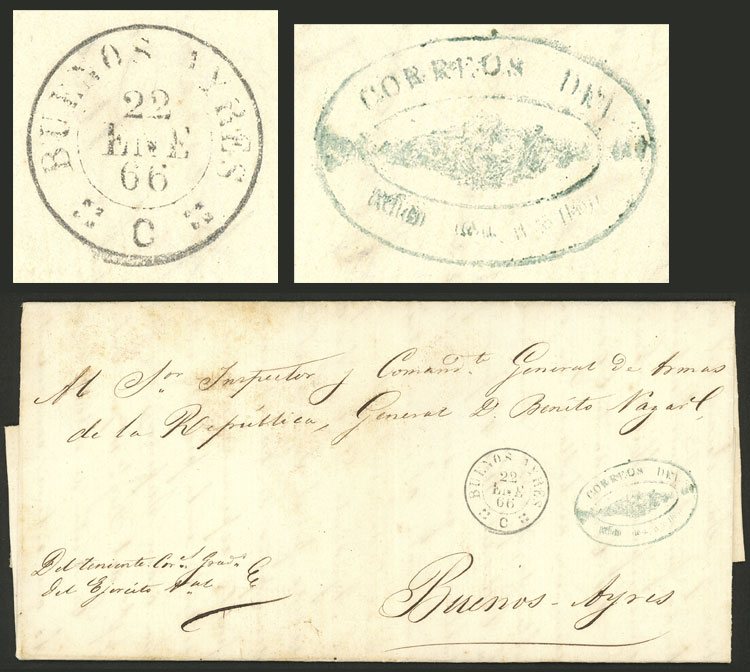 BUENOS AYRES
22
ENE
66
C
CORREOS DEL
Al Sor Inspector y Comandte General de Armas
de la República, General D. Benito Nazarl,
BUENOS AYRES
22
ENE
66
C
CORREOS DEL
Del teniente Corl Grado
del Ejército
Buenos-Ayres